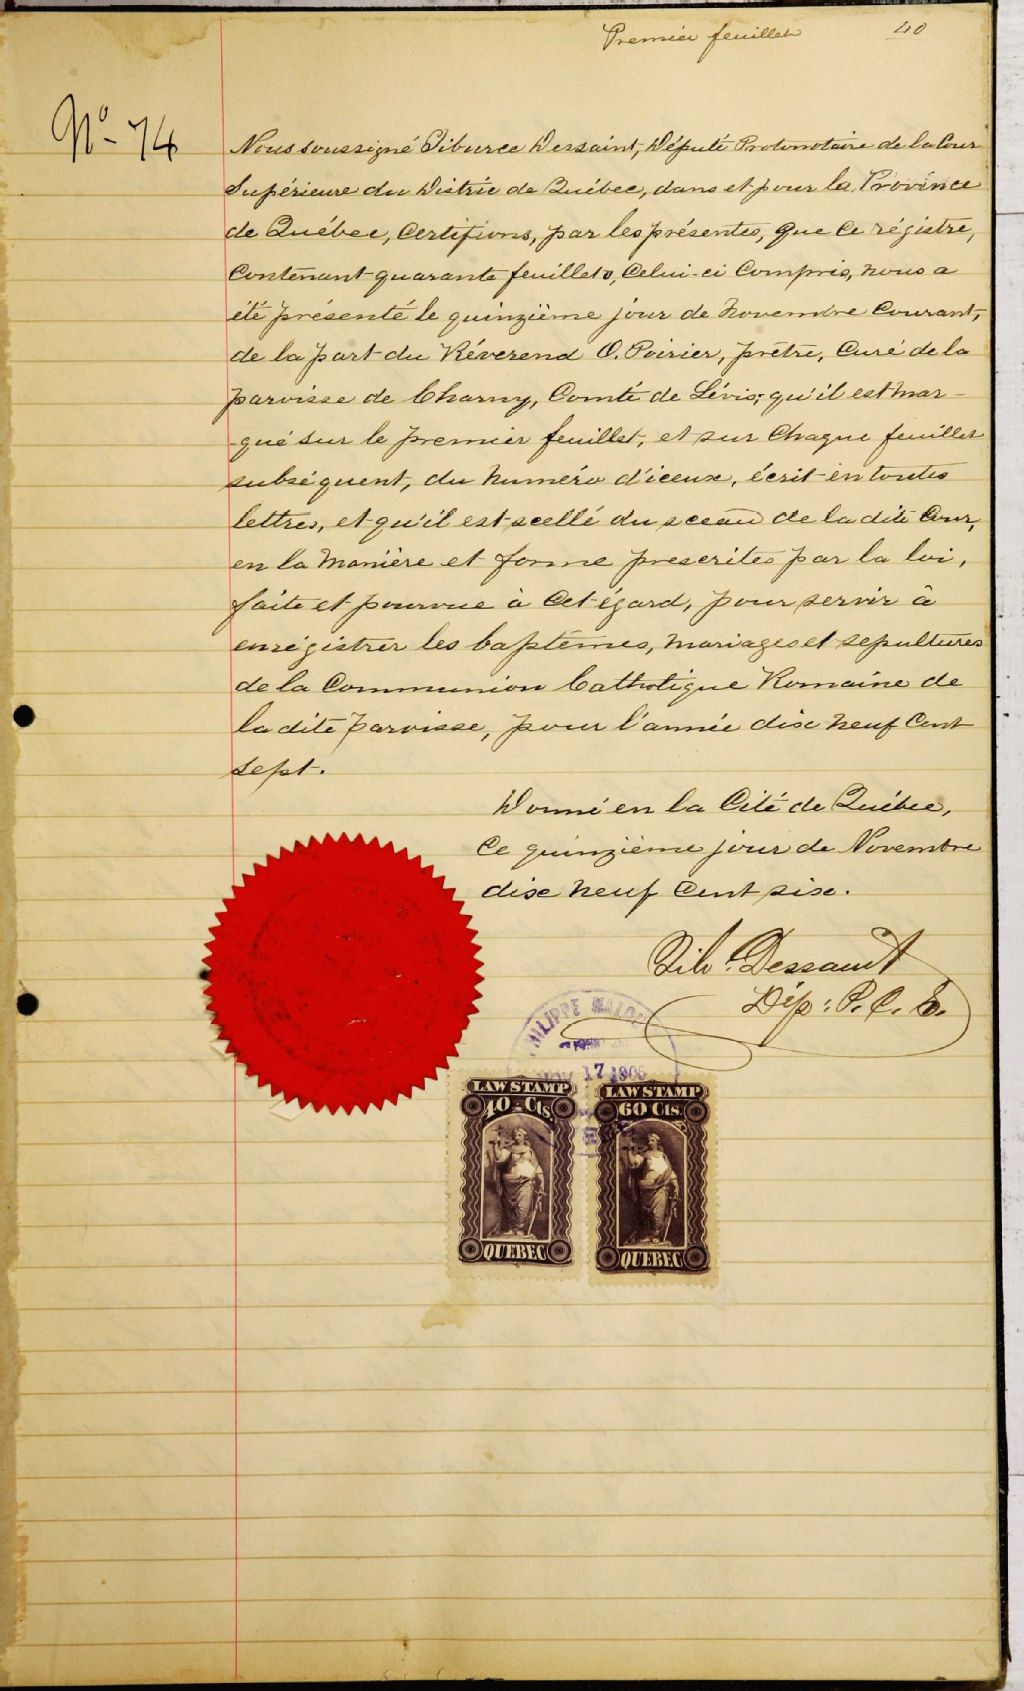 Premier feuillet
40
No- 74
Nous soussigné Tiburce Dessaint, Député Protonotaire de la Cour
Supérieure du District de Québec, dans et pour la Province
de Québec, Certifions, par les présentes, que ce régistre,
Contenant quarante feuillets, Celui-ci Compris, nous a
été présenté le quinzième jour de Novembre Courant,
de la part du Révérend O. Poirier, prêtre, Curé de la
paroisse de Charny, Comté de Lévis; qu'il est mar-
-qué sur le premier feuillet, et sur Chaque feuillet
subséquent, du numéro d'iceux, écrit en toutes
lettres, et qu'il est scellé du sceau de la dite Cour,
en la Manière et forme prescrites par la loi,
faite et pourvue à Cet égard, pour servir à
enrégistrer les baptêmes, mariages et sepultures
de la Communion Catholique Romaine de
la dite paroisse, pour l'année dix neuf Cent
sept.
Donné en la Cité de Québec,
Ce quinzième jour de Novembre
dix neuf Cent six.
Tib. Dessaint
Dép: P. C. S.
17 1906
LAW STAMP
40 Cts.
QUEBEC
LAW STAMP
60 Cts.
QUEBEC